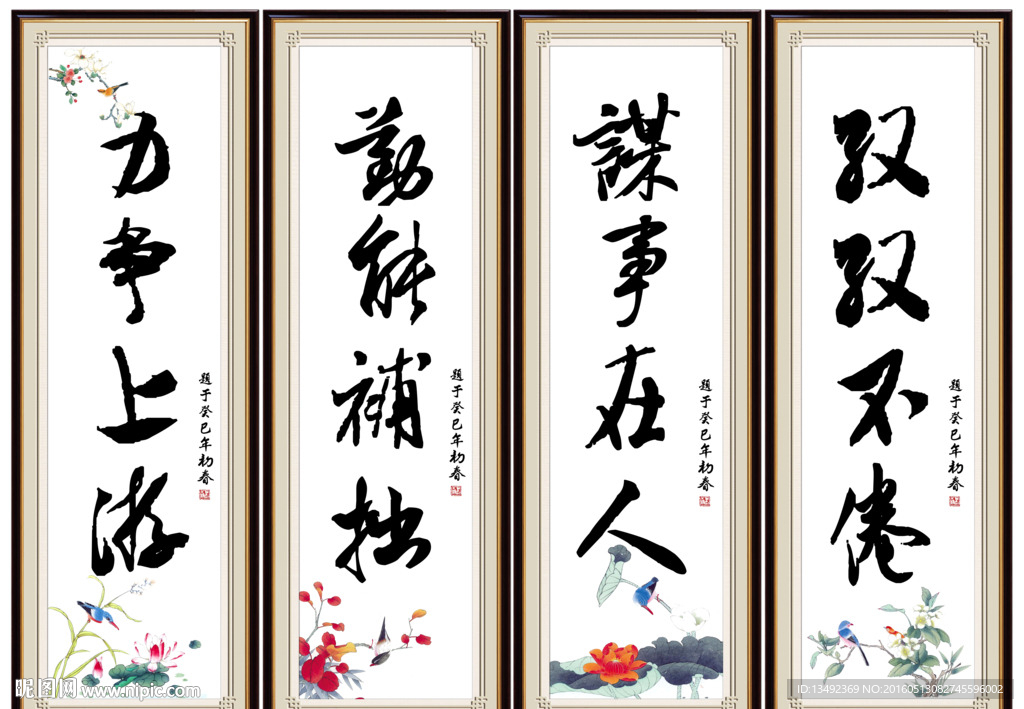 力争上游
題于癸巳年初春
勤能補拙
題于癸巳年初春
謀事在人
題于癸巳年初春
孜孜不倦
題于癸巳年初春
昵图网 www.nipic.com
ID:13492369 NO:20160513082745596002